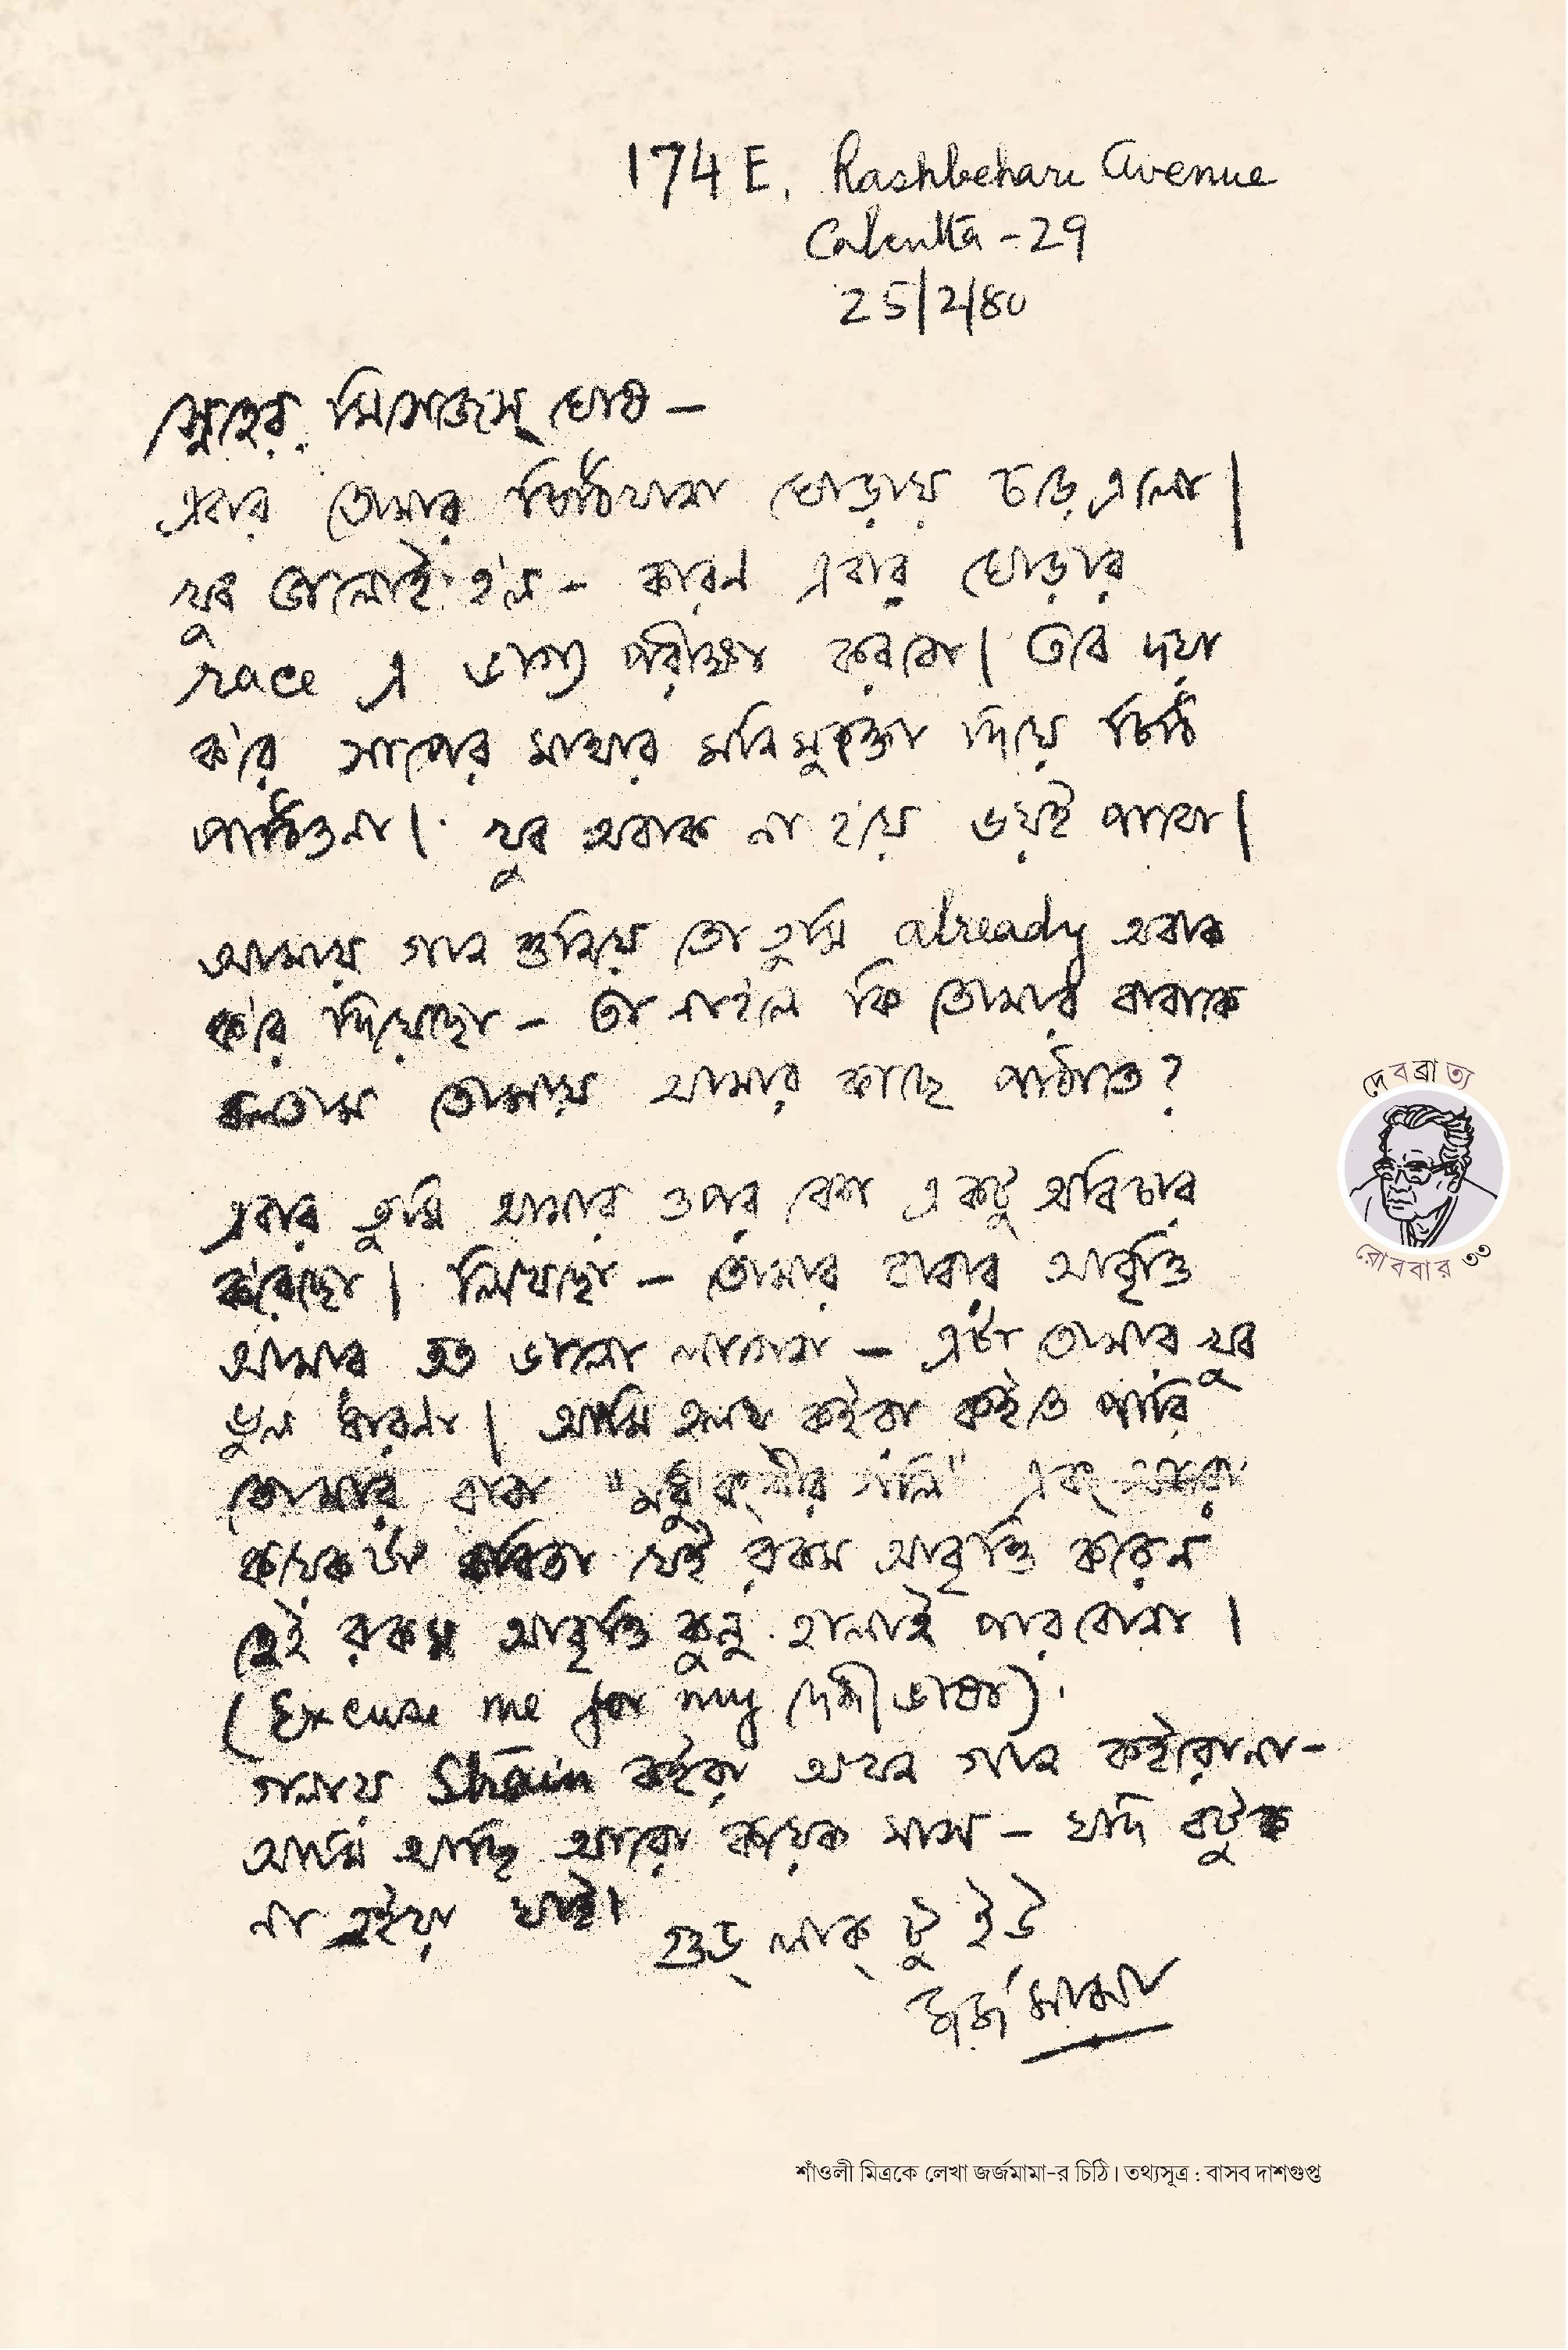 174 E, Rashbehari Avenue
Calcutta - 29
25/2/80
স্নেহের মিসেজস্ ঘোষ –
এবার তোমার চিঠিখানা ঘোড়ায় চড়ে এলো।
খুব ভালোই হ'ল - কারন এবার ঘোড়ার
race এ ভাগ্য পরীক্ষা করবো। তবে দয়া
ক'রে সাপের মাথার মনিমুক্তা দিয়ে চিঠি
পাঠিওনা। খুব অবাক না হ'য়ে ভয়ই পাবো।
আমায় গান শুনিয়ে তো তুমি already অবাক
ক'রে দিয়েছো – তা নাহ'লে কি তোমার বাবাকে
বলতাম তোমায় আমার কাছে পাঠাতে?
এবার তুমি আমার ওপর বেশ একটু অবিচার
করেছো। লিখেছো – তোমার বাবার আবৃত্তি
আমার অত ভালো লাগেনা – এটা তোমার খুব
ভুল ধারনা। আমি হলপ কইরা কইতে পারি
তোমার বাবা "মধুবংশীর গলি" এবং আরো
কয়েকটা কবিতা যেই রকম আবৃত্তি করেন
হেই রকম আবৃত্তি কুনু হালাই পারবোনা।
(Excuse me for my দেশী ভাষা)
গলায় Strain কইরা এখন গান কইরোনা –
আমি আছি আরো কয়েক মাস – যদি বটুক
না হইয়া যাই।
গুড্ লাক্ টু ইউ
জর্জমামা
দেবব্রাত্য
রোববার ৩৩
শাঁওলী মিত্রকে লেখা জর্জমামা-র চিঠি। তথ্যসূত্র : বাসব দাশগুপ্ত